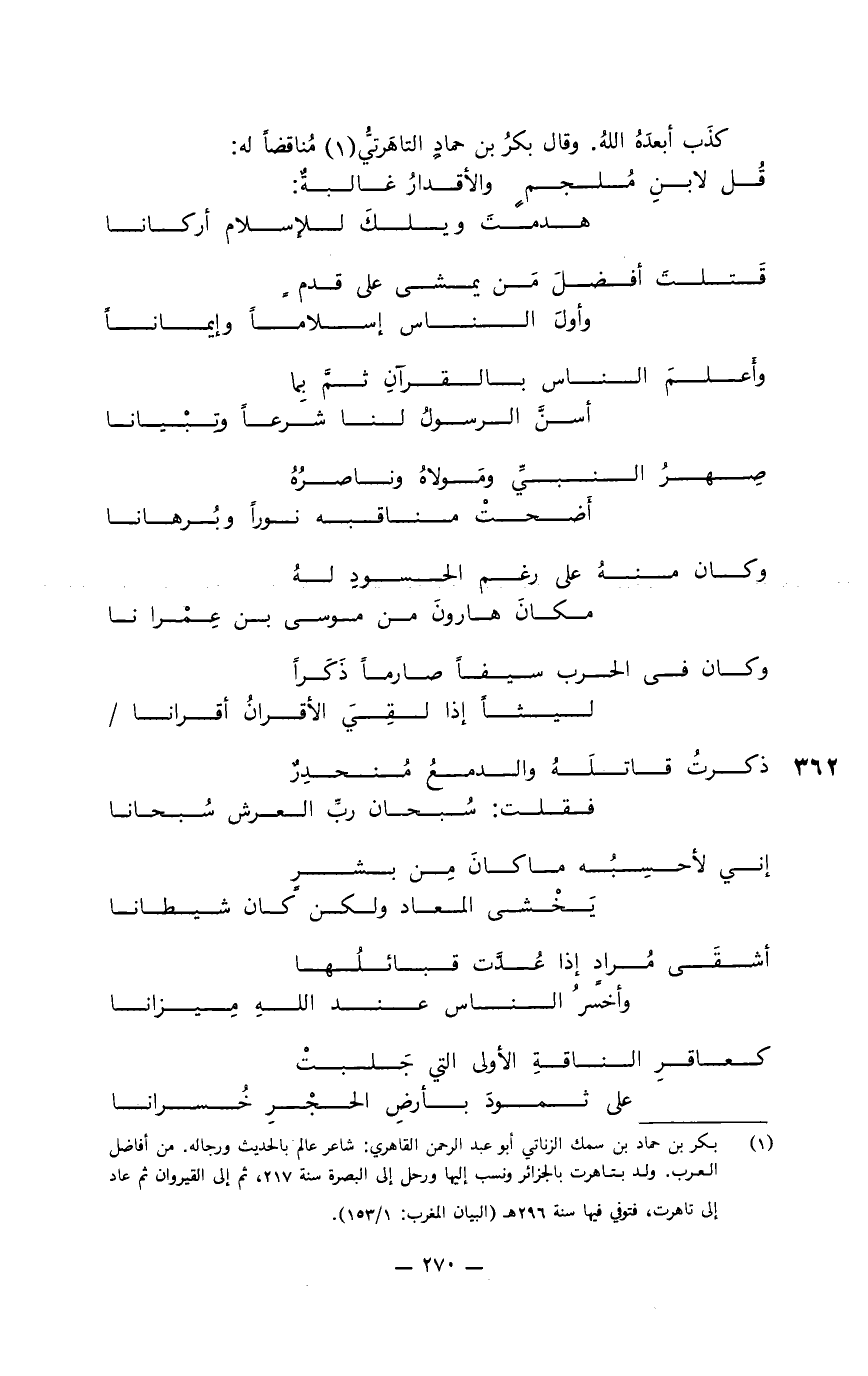 كذَب أبعدَهُ اللهُ. وقال بكرُ بن حمادٍ التاهَرتيُّ(١) مُناقضاً له:
قُل لابنِ مُلجمٍ والأقدارُ غالبةٌ:
هدمتَ ويلكَ للإسلام أركانا
قَتلتَ أفضلَ مَن يمشى على قدمٍ
وأولَ الناس إسلاماً وإيماناً
وأَعلمَ الناس بالقرآنِ ثمَّ بِما
أسنَّ الرسولُ لنا شرعاً وتبْيانا
صِهرُ النبيِّ ومَولاهُ وناصرُهُ
أَضحتْ مناقبه نوراً وبُرهانا
وكان منهُ على رغم الحسودِ لهُ
مكانَ هارونَ من موسى بن عِمْرا نا
وكان فى الحرب سيفاً صارماً ذَكَراً
ليثاً إذا لقِيَ الأقرانُ أقرانا /
٣٦٢ ذكرتُ قاتلَهُ والدمعُ مُنحدِرٌ
فقلت: سُبحان ربِّ العرش سُبحانا
إني لأحسِبُه ماكانَ مِن بشرٍ
يَخْشى المعاد ولكن كان شيطانا
أشقَى مُرادٍ إذا عُدَّت قبائلُها
وأخسرُ الناس عند اللهِ مِيزانا
كعاقرِ الناقةِ الأولى التي جَلبتْ
على ثمودَ بأرضِ الحجْرِ خُسرانا
(١) بكر بن حماد بن سمك الزناتي أبو عبد الرحمن القاهري: شاعر عالم بالحديث ورجاله. من أفاضل
العرب. ولد بتاهرت بالجزائر ونسب إليها ورحل إلى البصرة سنة ٢١٧، ثم إلى القيروان ثم عاد
إلى تاهرت، فتوفي فيها سنة ٢٩٦هـ (البيان المغرب: ١/١٥٣).
— ٢٧٠ —